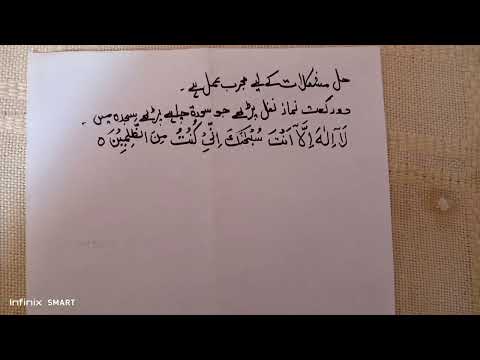 حل مشکلات کے لیے مجرب عمل ہے ۔
دو رکعت نماز نفل پڑھے جو سورۃ چاہے پڑھے سجدہ میں ۔
لَآ اِلٰهَ اِلَّآ اَنْتَ سُبْحٰنَكَ اِنِّیْ كُنْتُ مِنَ الظّٰلِمِیْنَ ○
Infinix SMART